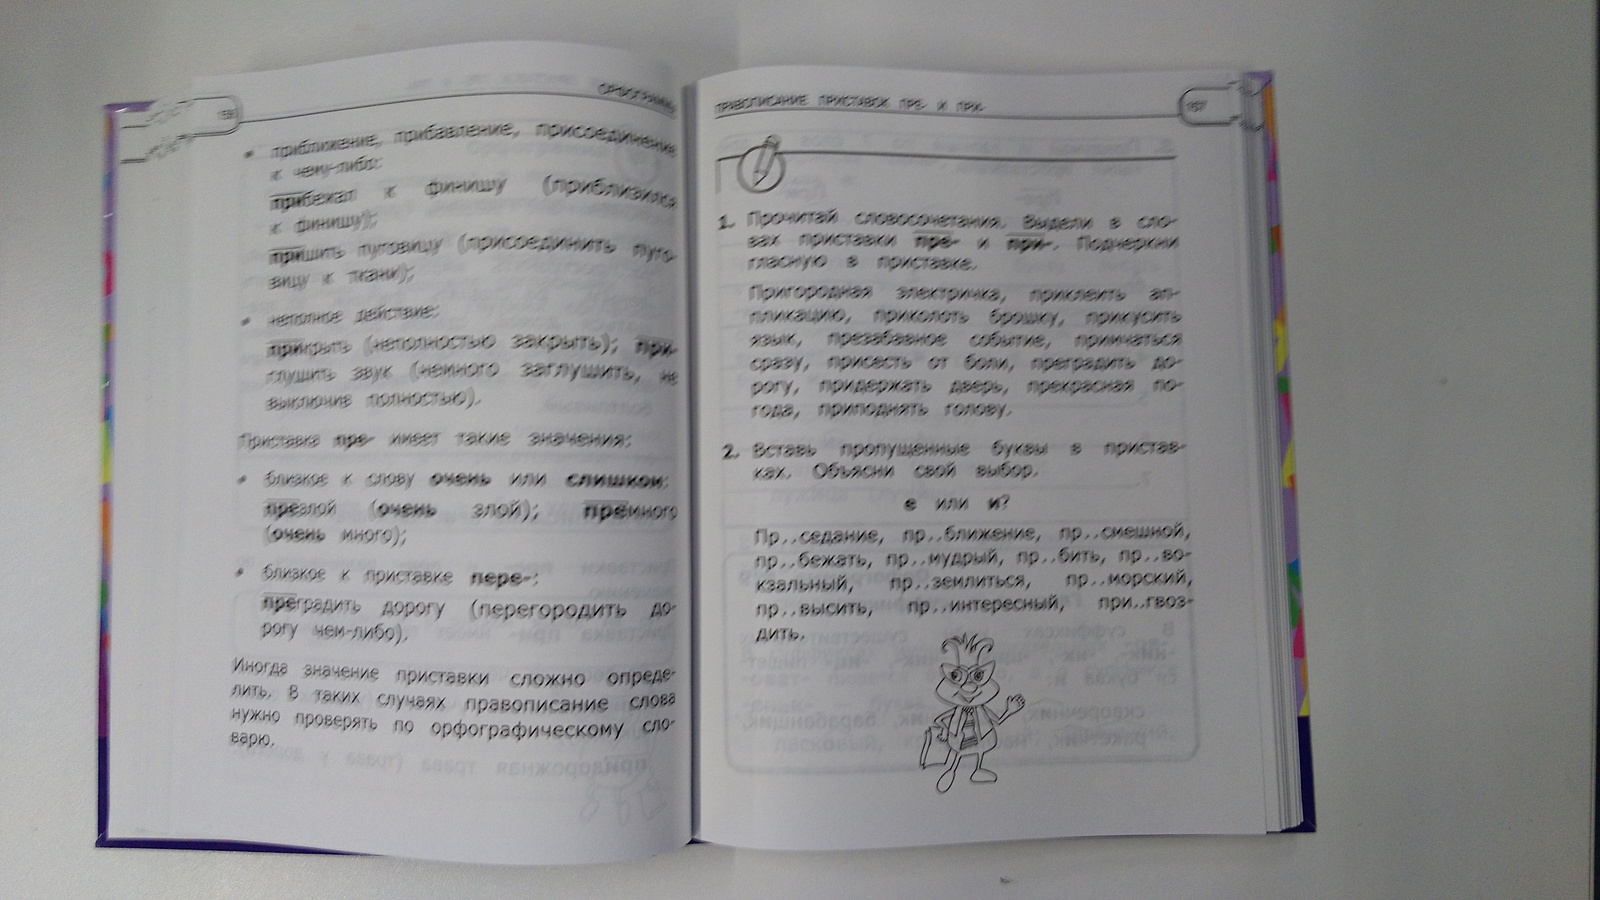 ОРФОГРАММЫ
• приближение, прибавление, присоединение
к чему-либо:
прибежал к финишу (приблизился
к финишу);
пришить пуговицу (присоединить пуго-
вицу к ткани);
• неполное действие:
прикрыть (неполностью закрыть); при-
глушить звук (немного заглушить, не
выключив полностью).
Приставка пре- имеет такие значения:
• близкое к слову очень или слишком:
презлой (очень злой); премного
(очень много);
• близкое к приставке пере-:
преградить дорогу (перегородить до-
рогу чем-либо).
Иногда значение приставки сложно опреде-
лить. В таких случаях правописание слова
нужно проверять по орфографическому сло-
варю.
ПРАВОПИСАНИЕ ПРИСТАВОК ПРЕ- И ПРИ-
1. Прочитай словосочетания. Выдели в сло-
вах приставки пре- и при-. Подчеркни
гласную в приставке.
Пригородная электричка, приклеить ап-
пликацию, приколоть брошку, прикусить
язык, презабавное событие, примчаться
сразу, присесть от боли, преградить до-
рогу, придержать дверь, прекрасная по-
года, приподнять голову.
2. Вставь пропущенные буквы в пристав-
ках. Объясни свой выбор.
е или и?
Пр..седание, пр..ближение, пр..смешной,
пр..бежать, пр..мудрый, пр..бить, пр..во-
кзальный, пр..землиться, пр..морский,
пр..высить, пр..интересный, при..гвоз-
дить.